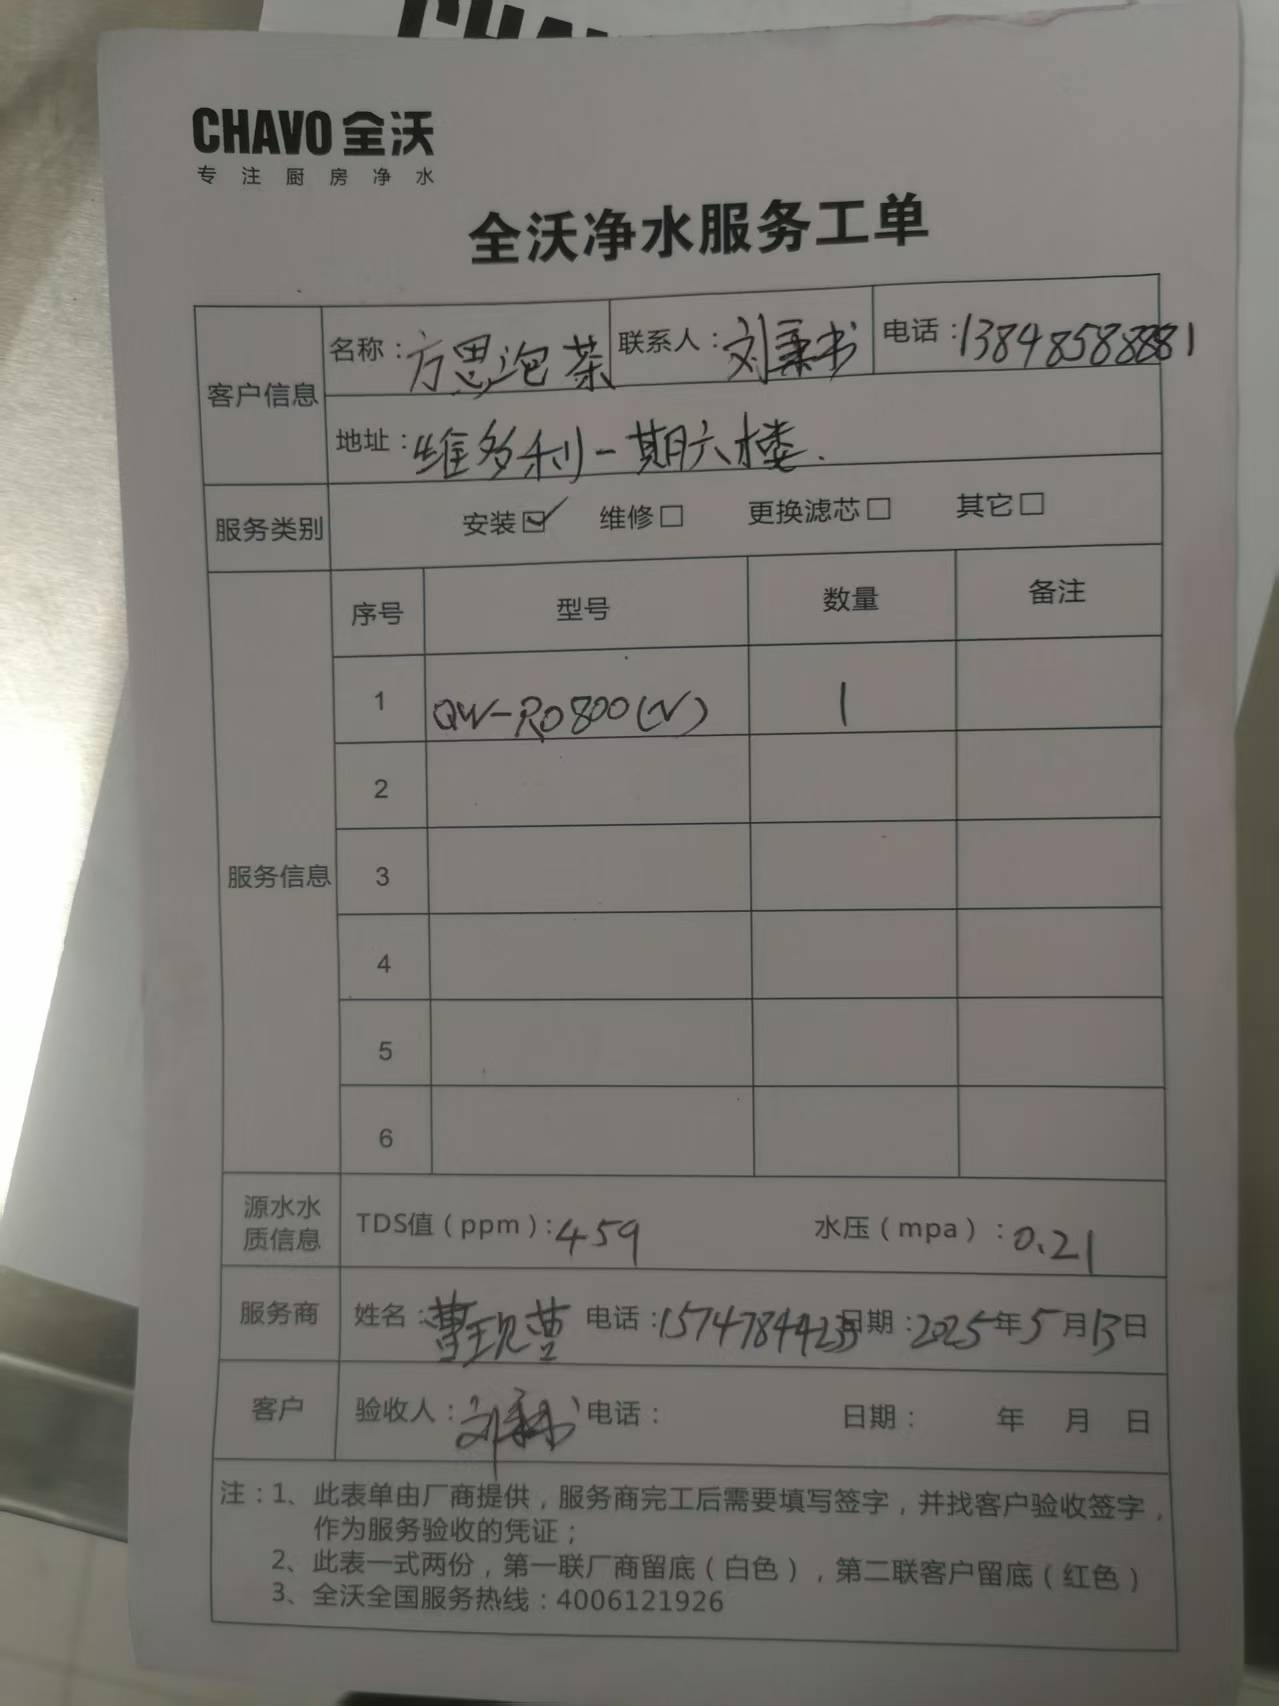 CHAVO全沃
专注厨房净水
全沃净水服务工单
客户信息
名称：方思泡茶 联系人：刘秉书 电话：13848588881
地址：维多利一期六楼.
服务类别 安装☑ 维修□ 更换滤芯□ 其它□
服务信息
序号 型号 数量 备注
1 QW-RO800(N) 1
2
3
4
5
6
源水水质信息 TDS值（ppm）：459 水压（mpa）：0.21
服务商 姓名： 电话： 日期：2025年5月13日
客户 验收人： 电话： 日期： 年 月 日
注：1、此表单由厂商提供，服务商完工后需要填写签字，并找客户验收签字，
作为服务验收的凭证；
2、此表一式两份，第一联厂商留底（白色），第二联客户留底（红色）
3、全沃全国服务热线：4006121926